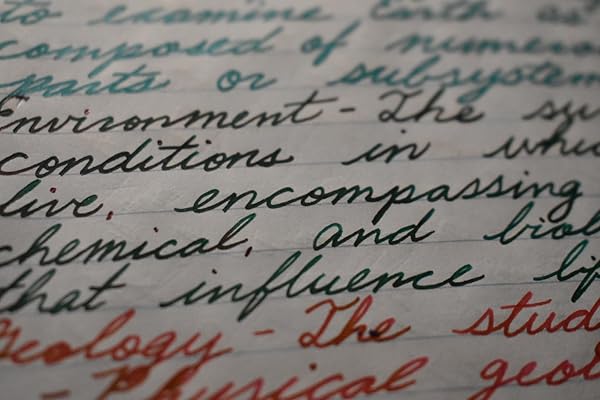 to examine Earth as
composed of numero
parts or subsystem
Environment - The su
conditions in whic
live, encompassing
chemical, and biol
that influence lif
Geology - The stud
- Physical geol